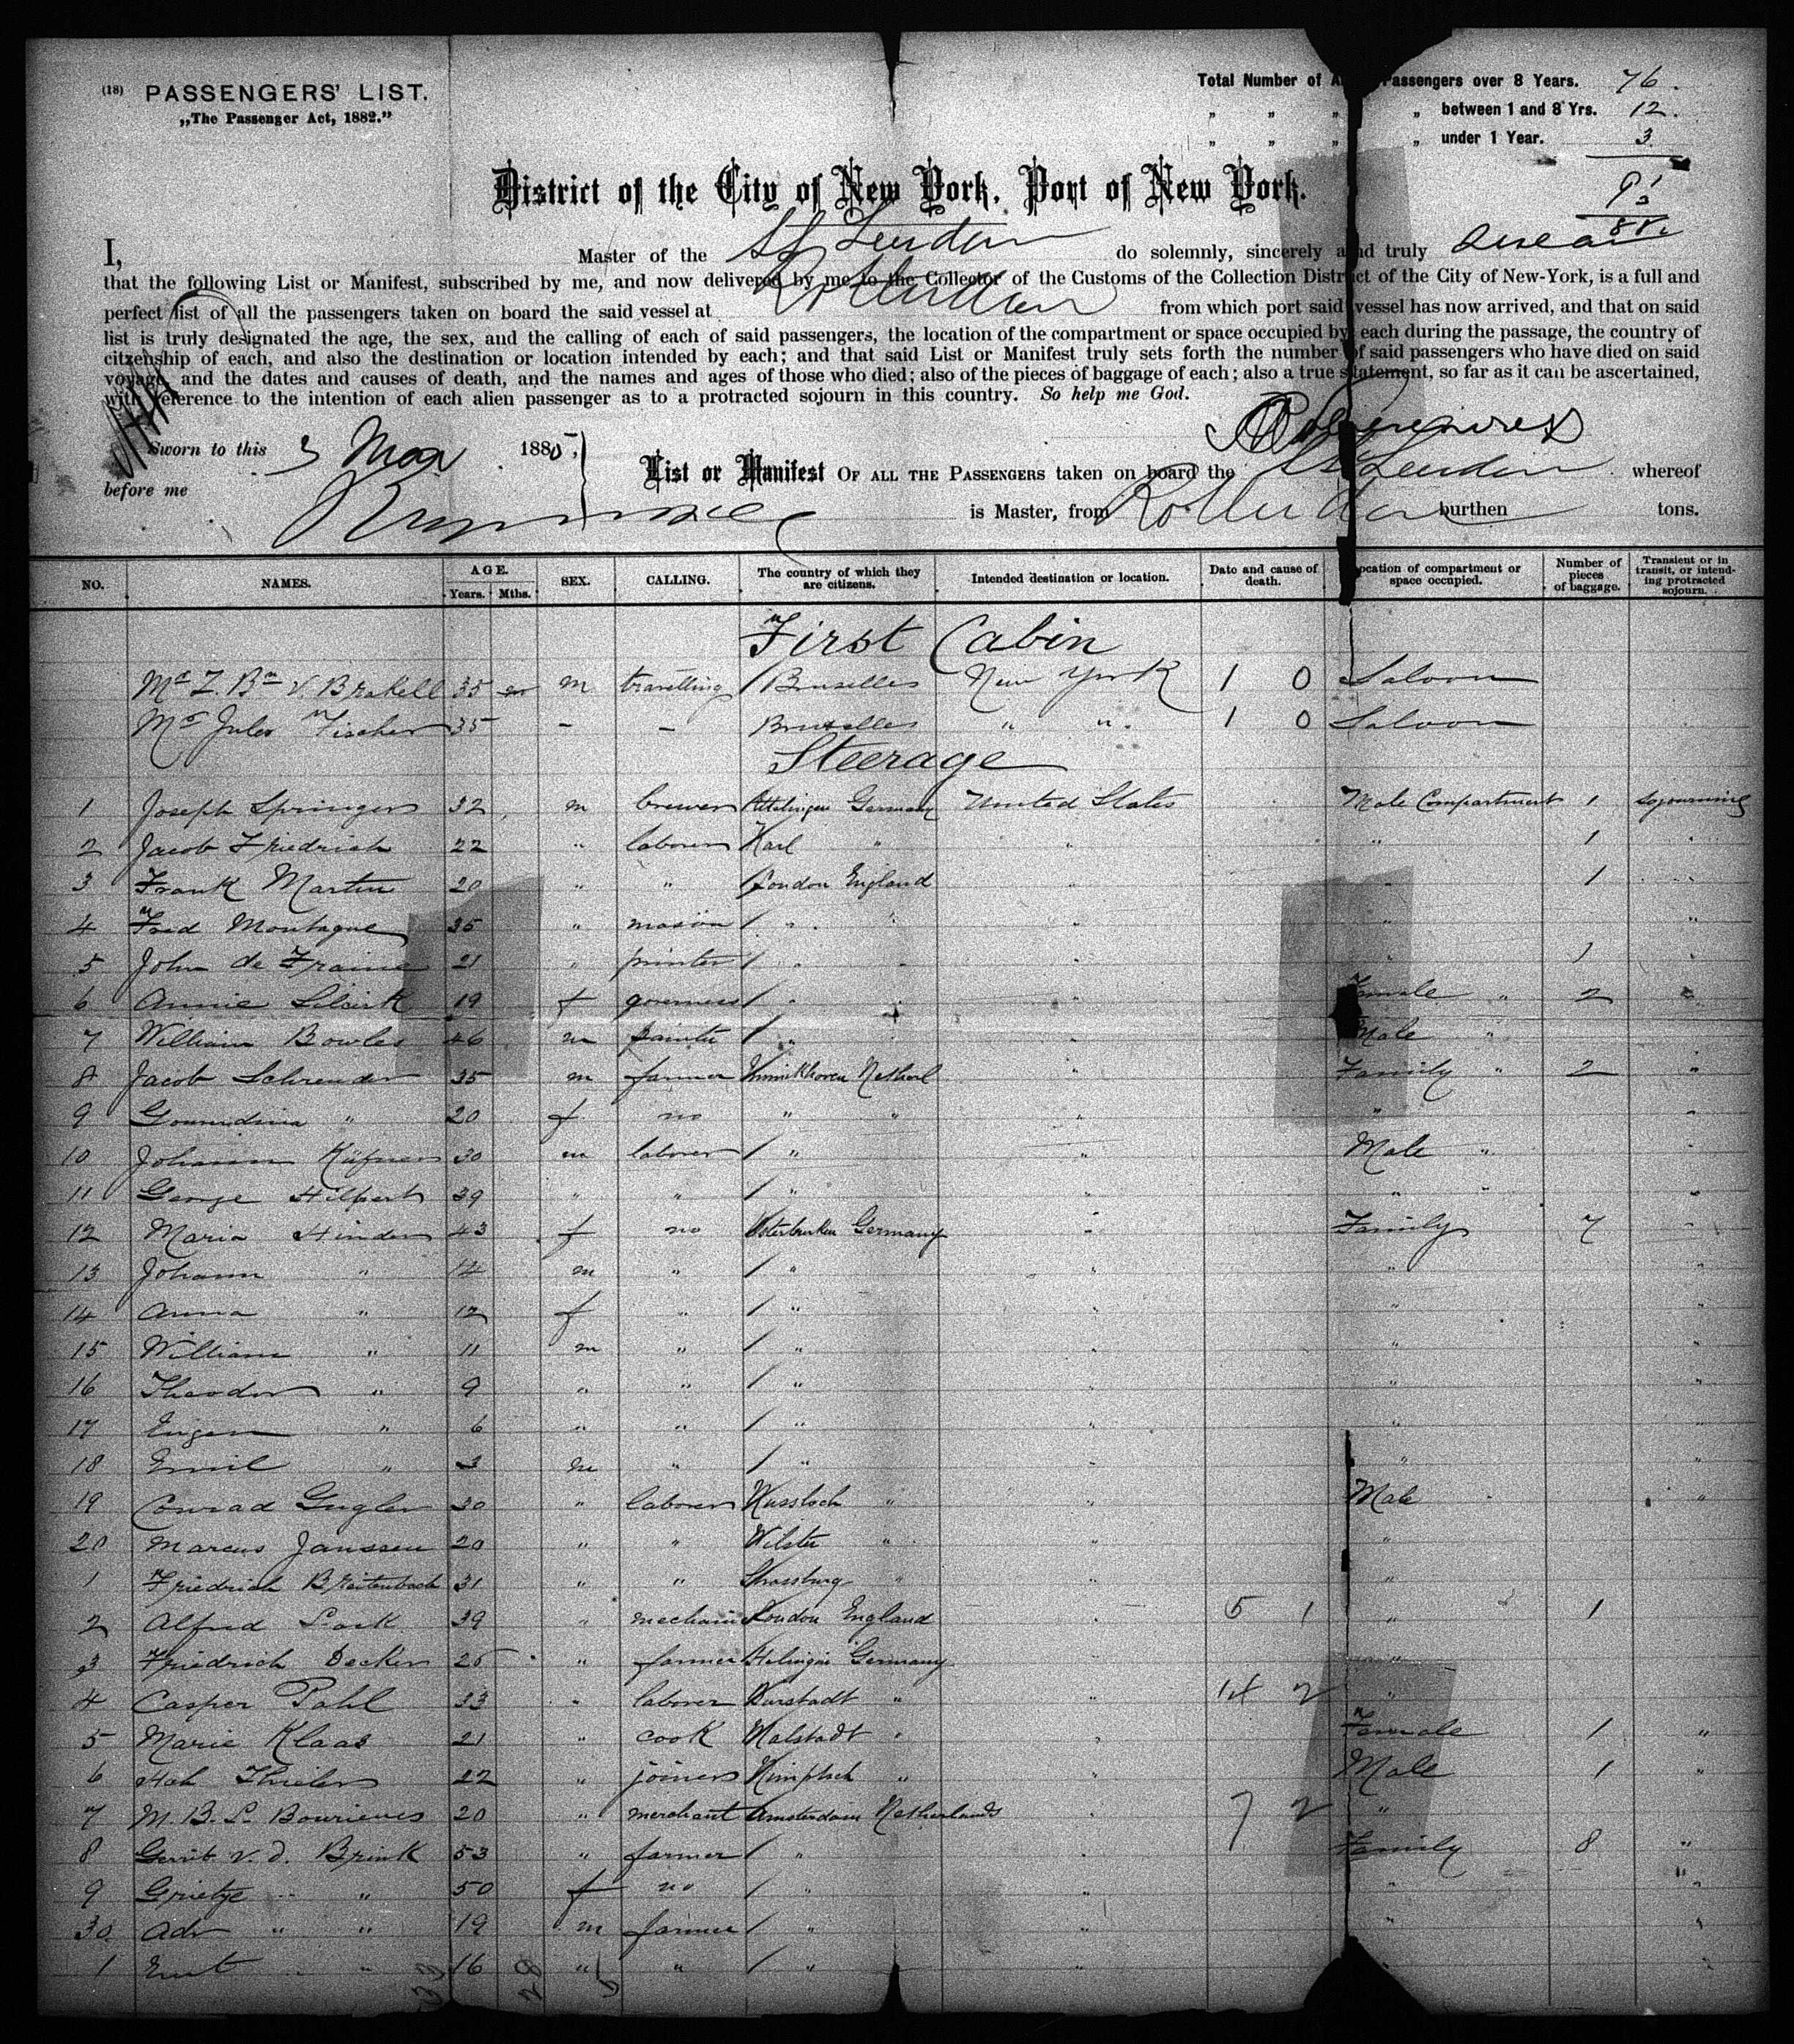 (18) PASSENGERS' LIST.
„The Passenger Act, 1882."
Total Number of Passengers over 8 Years. 76.
„ „ „ „ between 1 and 8 Yrs. 12.
„ „ „ „ under 1 Year. 3
91
3
88
District of the City of New York, Port of New York.
I, Master of the do solemnly, sincerely and truly
that the following List or Manifest, subscribed by me, and now delivered by me to the Collector of the Customs of the Collection District of the City of New-York, is a full and
perfect list of all the passengers taken on board the said vessel at Rotterdam from which port said vessel has now arrived, and that on said
list is truly designated the age, the sex, and the calling of each of said passengers, the location of the compartment or space occupied by each during the passage, the country of
citzenship of each, and also the destination or location intended by each; and that said List or Manifest truly sets forth the number of said passengers who have died on said
voyage, and the dates and causes of death, and the names and ages of those who died; also of the pieces of baggage of each; also a true statement, so far as it can be ascertained,
with reference to the intention of each alien passenger as to a protracted sojourn in this country. So help me God.
Sworn to this 3 Mar 1885,
before me
List or Manifest OF ALL THE PASSENGERS taken on board the whereof
is Master, from Rotterdam burthen tons.
NO. NAMES. AGE. Years. Mths. SEX. CALLING. The country of which they are citizens. Intended destination or location. Date and cause of death. Location of compartment or space occupied. Number of pieces of baggage. Transient or in transit, or intending protracted sojourn.
First Cabin
Mr Z. Bn V. Brakell 35 m travelling Bruxelles New York 1 0 Saloon
Mr Jules Fischer 35 - - Bruxelles " " 1 0 Saloon
Steerage
1 Joseph Springer 32 m brewer Germany United States Male Compartment 1 sojourning
2 Jacob Friedrich 22 " laborer Karl " " " 1 "
3 Frank Martin 20 " " London England " " 1 "
4 Fred Montague 35 " mason / " " " " "
5 John de Fraine 21 " printer / " " " " 1 "
6 Annie 19 f governess / " " " Female " 2 "
7 William Bowles 46 m painter / " " Male "
8 Jacob Schreuder 35 m farmer Netherl " Family " 2 "
9 " 20 f no " " " " "
10 Johann Küfner 30 m laborer / " " Male "
11 George Hilpert 39 " " / " " " " "
12 Maria Hinder 43 f no Osterburken Germany " Family 7 "
13 Johann " 14 m " / " " " "
14 Anna " 12 f " / " " " "
15 William " 11 m " / " " " "
16 Theodor " 9 " " / " " " "
17 Eugen " 6 " " / " " " "
18 Emil " 3 m " / " " " "
19 Conrad Gugler 30 " laborer Nussloch " " Male "
20 Marcus Janssen 20 " " Wilster " " "
1 Friedrich Breitenbach 31 " " Strassburg " "
2 Alfred 39 " mechanic London England " 5 1 " 1
3 Friedrich Decker 25 " farmer Germany " "
4 Casper Pahl 33 " laborer " " 14 2 "
5 Marie Klaas 21 " cook Malstadt " " Female 1 "
6 22 " joiner Nimptsch " " Male 1 "
7 M. B. L. Bourieues 20 " merchant Amsterdam Netherlands " 7 2 "
8 Gerrit v. d. Brink 53 " farmer / " " Family 8 "
9 Grietje " " 50 f no / " " " "
30 Adr " " 19 m farmer / " " " "
1 " " 16 " " / " " "